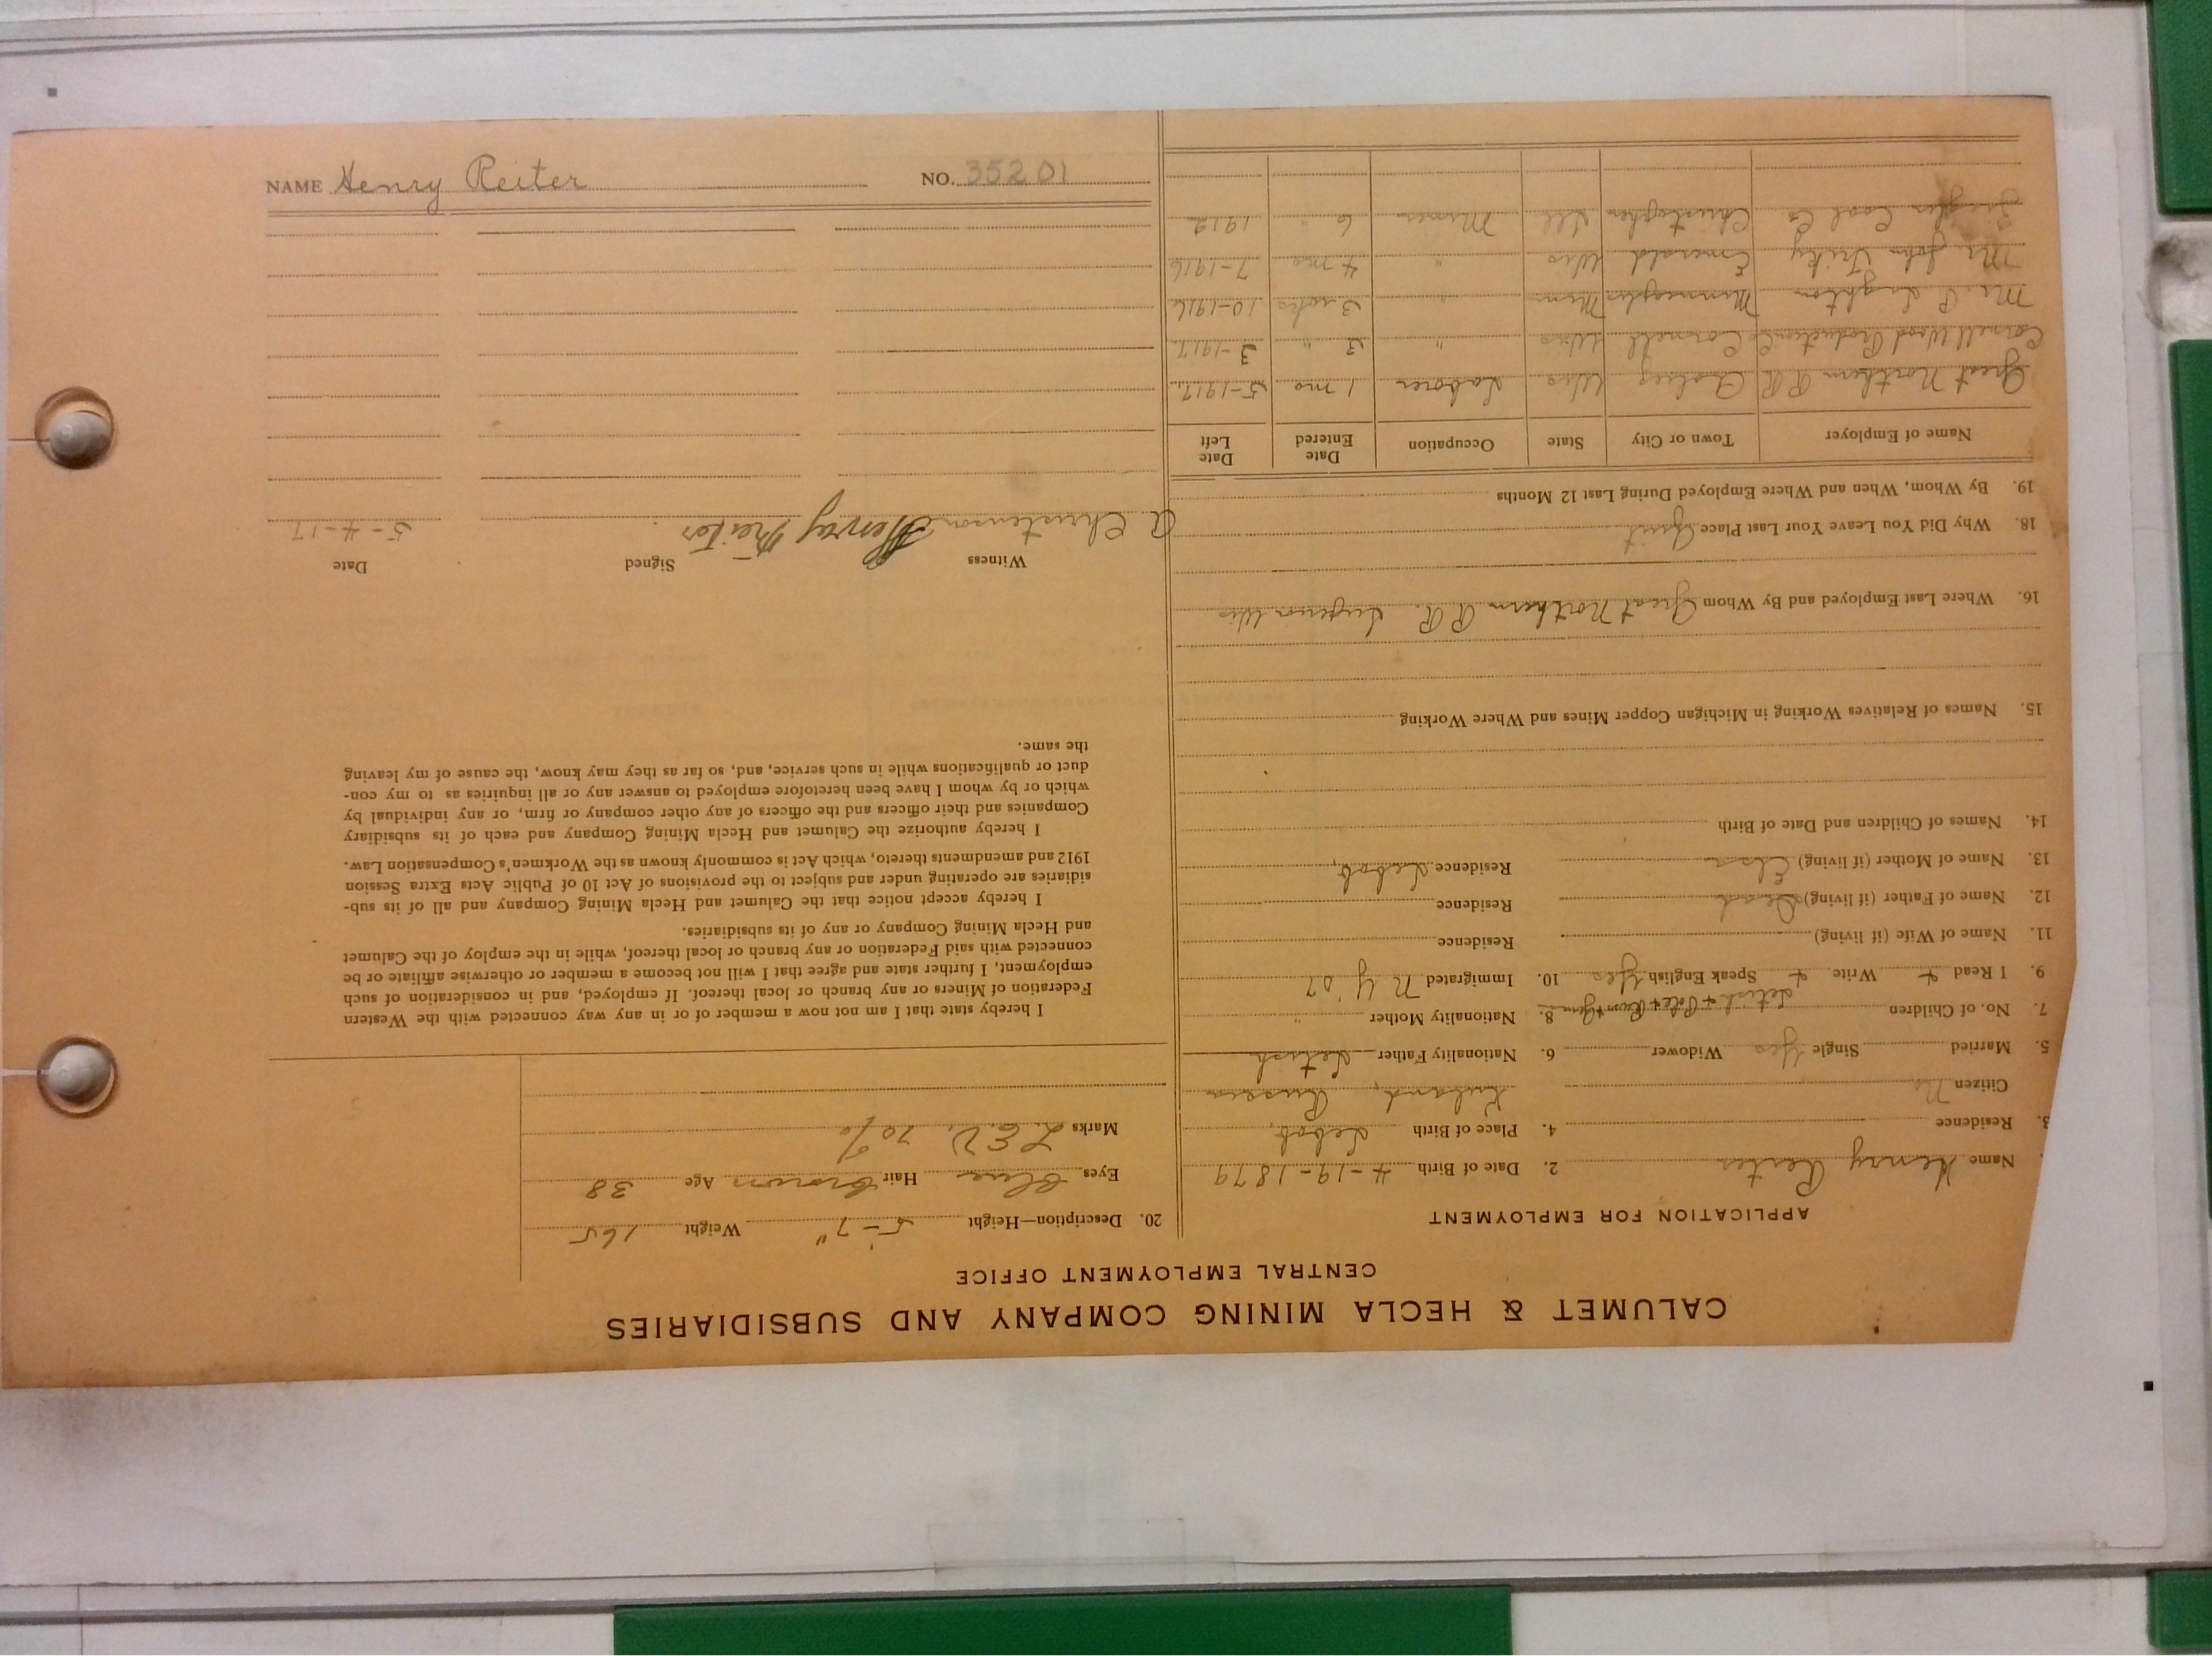 CALUMET & HECLA MINING COMPANY AND SUBSIDIARIES
CENTRAL EMPLOYMENT OFFICE
APPLICATION FOR EMPLOYMENT
Name Henry Reiter 2. Date of Birth 4-19-1879
3. Residence 4. Place of Birth Lebob,
Citizen No Kurland, Russia
5. Married Single Yes Widower 6. Nationality Father Letish
7. No. of Children 8. Nationality Mother "
Letish + Pole + Russ + Germ
9. I Read + Write + Speak English Yes 10. Immigrated N Y '07
11. Name of Wife (if living) Residence
12. Name of Father (if living) Dead Residence
13. Name of Mother (if living) Residence Lebob,
14. Names of Children and Date of Birth
15. Names of Relatives Working in Michigan Copper Mines and Where Working
16. Where Last Employed and By Whom Great Northern R R. Superior Wis
18. Why Did You Leave Your Last Place Quit
19. By Whom, When and Where Employed During Last 12 Months
Name of Employer Town or City State Occupation Date Entered Date Left
Great Northern R R Wis Laborer 1 mo 5-1917
Cornell Wood Production Co Cornell Wis " 3 " 3-1917
Mr. P. Leghton Minneaplis Minn " 3 wks 10-1916
Mr. John Emerald Wis " 4 mo 7-1916
Zeigler Coal Co Christopher Ill Miner 6 " 1912
20. Description—Height 5-7" Weight 165
Eyes Blue Hair Brown Age 38
Marks L. E. V. 70%
I hereby state that I am not now a member of or in any way connected with the Western
Federation of Miners or any branch or local thereof. If employed, and in consideration of such
employment, I further state and agree that I will not become a member or otherwise affiliate or be
connected with said Federation or any branch or local thereof, while in the employ of the Calumet
and Hecla Mining Company or any of its subsidiaries.
I hereby accept notice that the Calumet and Hecla Mining Company and all of its sub-
sidiaries are operating under and subject to the provisions of Act 10 of Public Acts Extra Session
1912 and amendments thereto, which Act is commonly known as the Workmen's Compensation Law.
I hereby authorize the Calumet and Hecla Mining Company and each of its subsidiary
Companies and their officers and the officers of any other company or firm, or any individual by
which or by whom I have been heretofore employed to answer any or all inquiries as to my con-
duct or qualifications while in such service, and, so far as they may know, the cause of my leaving
the same.
Witness Signed Date
A Christenson Henry Reiter. 5-4-17
NAME Henry Reiter NO. 35201